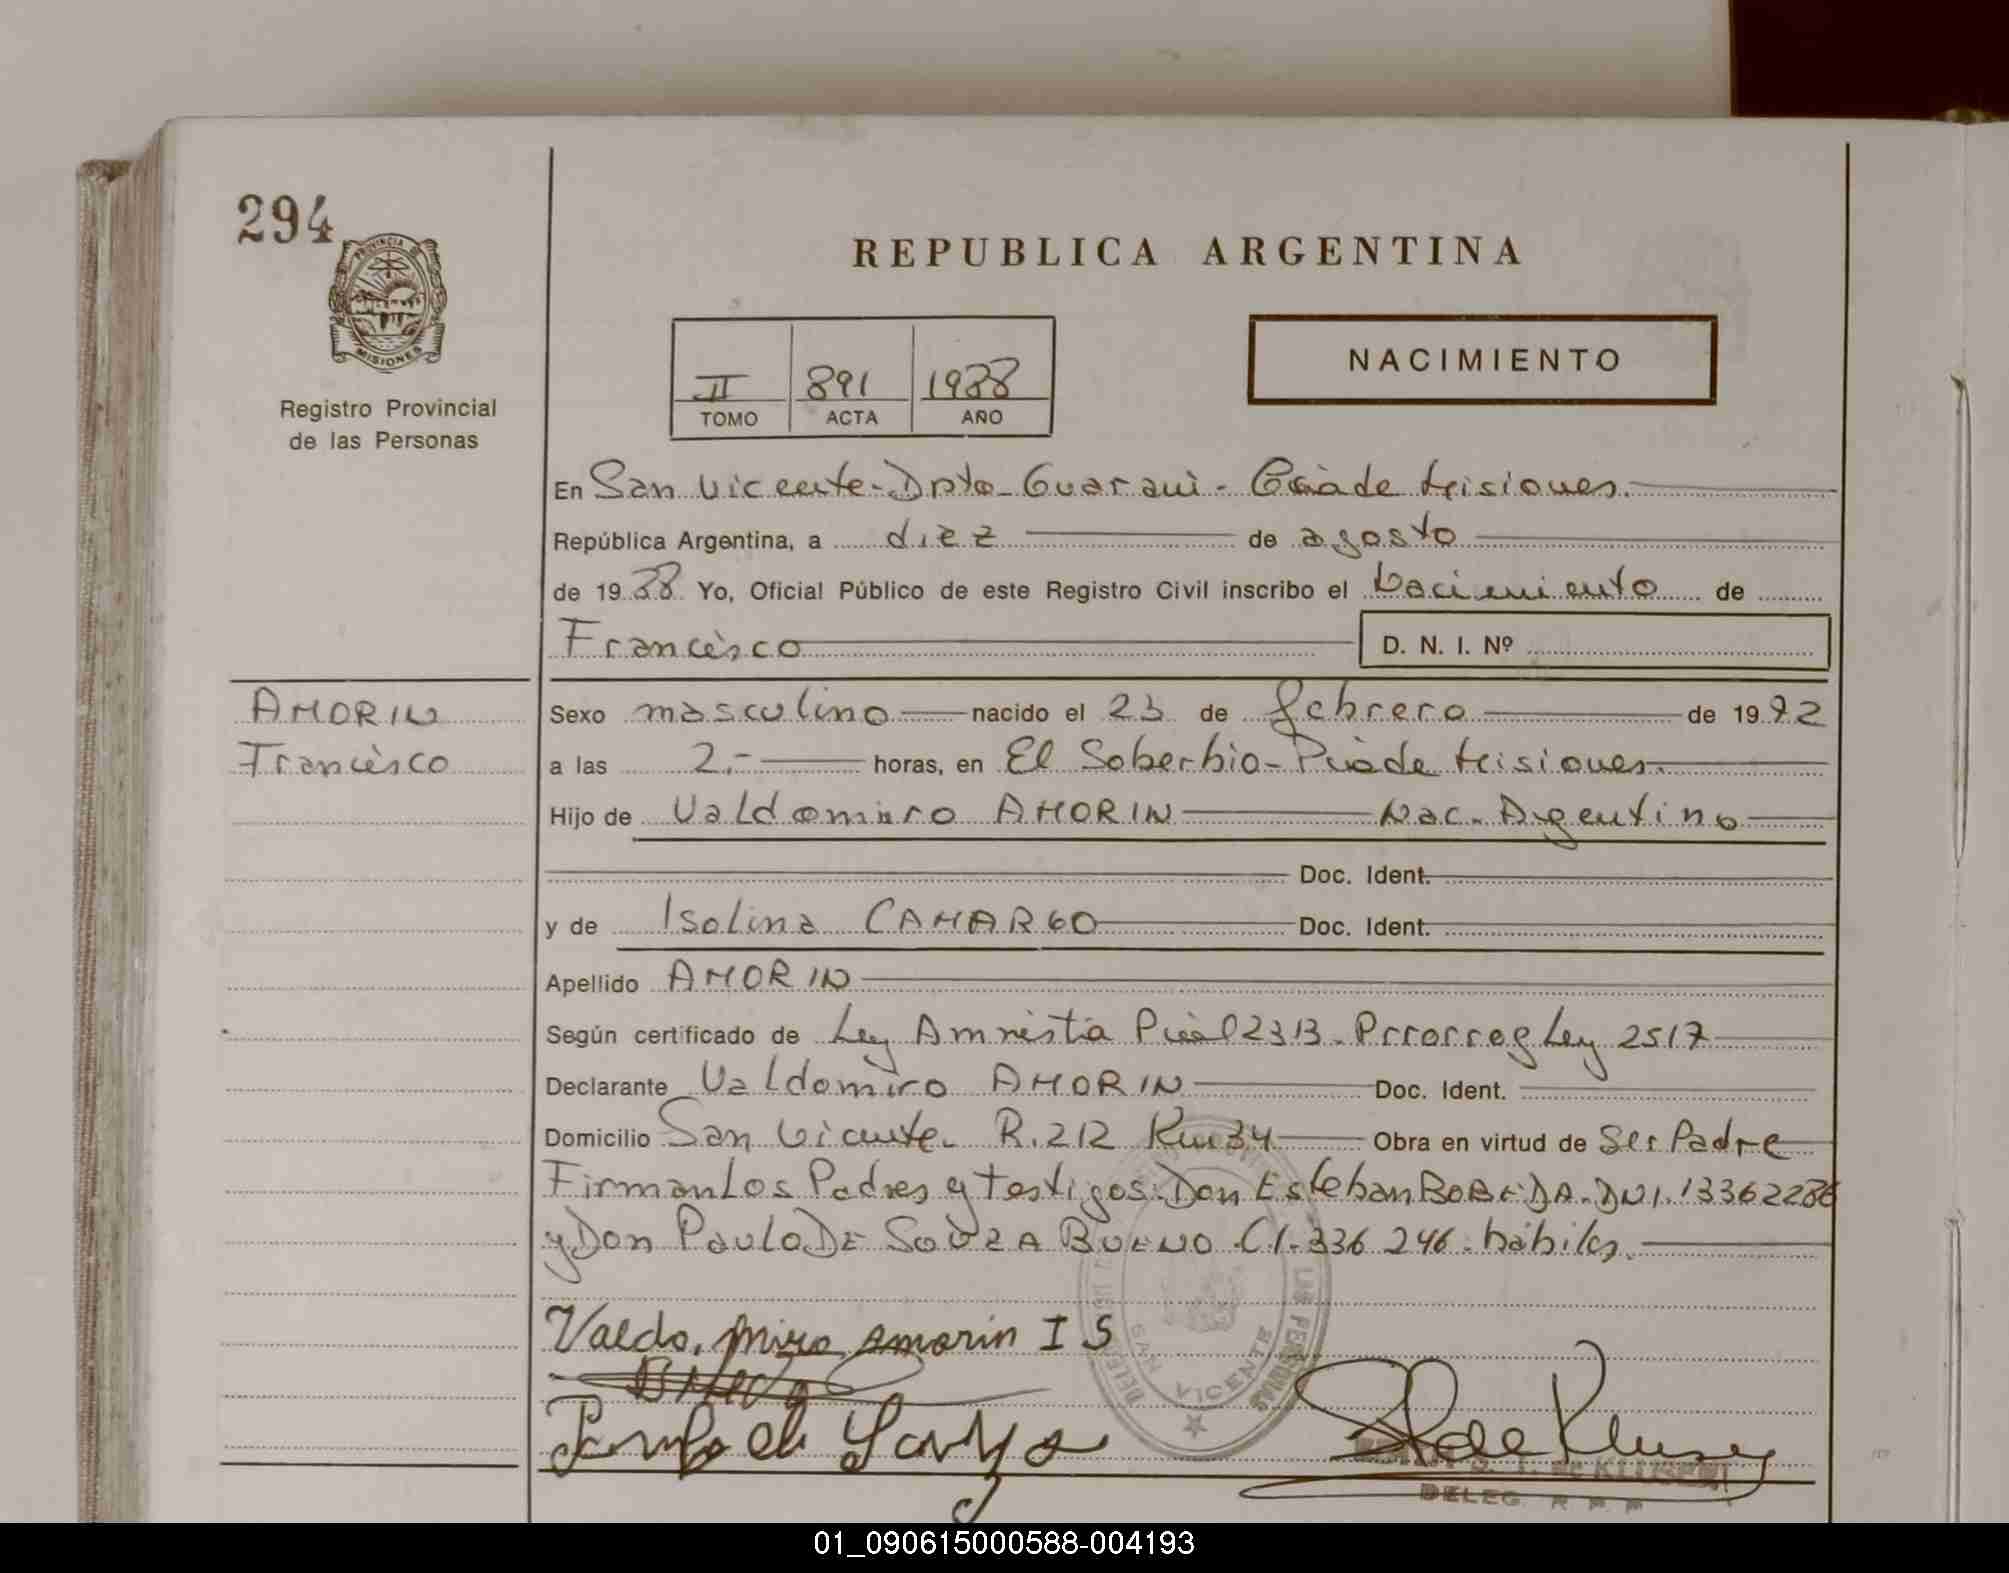 294
PROVINCIA DE
MISIONES
Registro Provincial
de las Personas
REPUBLICA ARGENTINA
II 891 1988
TOMO ACTA AÑO
NACIMIENTO
En San Vicente - Dpto - Guarani - Pciade Misiones.
República Argentina, a diez de agosto
de 1988 Yo, Oficial Público de este Registro Civil inscribo el Nacimiento de
Francisco D. N. I. Nº
AMORIN
Francisco
Sexo masculino nacido el 23 de febrero de 19
a las 2.- horas, en El Soberbio - Pciade Misiones.
Hijo de Valdomiro AMORIN Nac. Argentino
Doc. Ident.
y de Isolina CAMARGO Doc. Ident.
Apellido AMORIN
Según certificado de Ley Amnistia Pcial 2313. Prrorrog Ley 2517
Declarante Valdomiro AMORIN Doc. Ident.
Domicilio San Vicente. R. 212 Km 34 Obra en virtud de Ser Padre
Firman Los Padres y Testigos: Don Esteban BOBEDA. DNI. 13362286
y Don Paulo DE SOUZA BUENO C I. 336 246. hábiles.
Valdo, miro Amorin I S
SAN VICENTE
LAS PERSONAS
de KLUSENER
DELEG. R P P
01_090615000588-004193